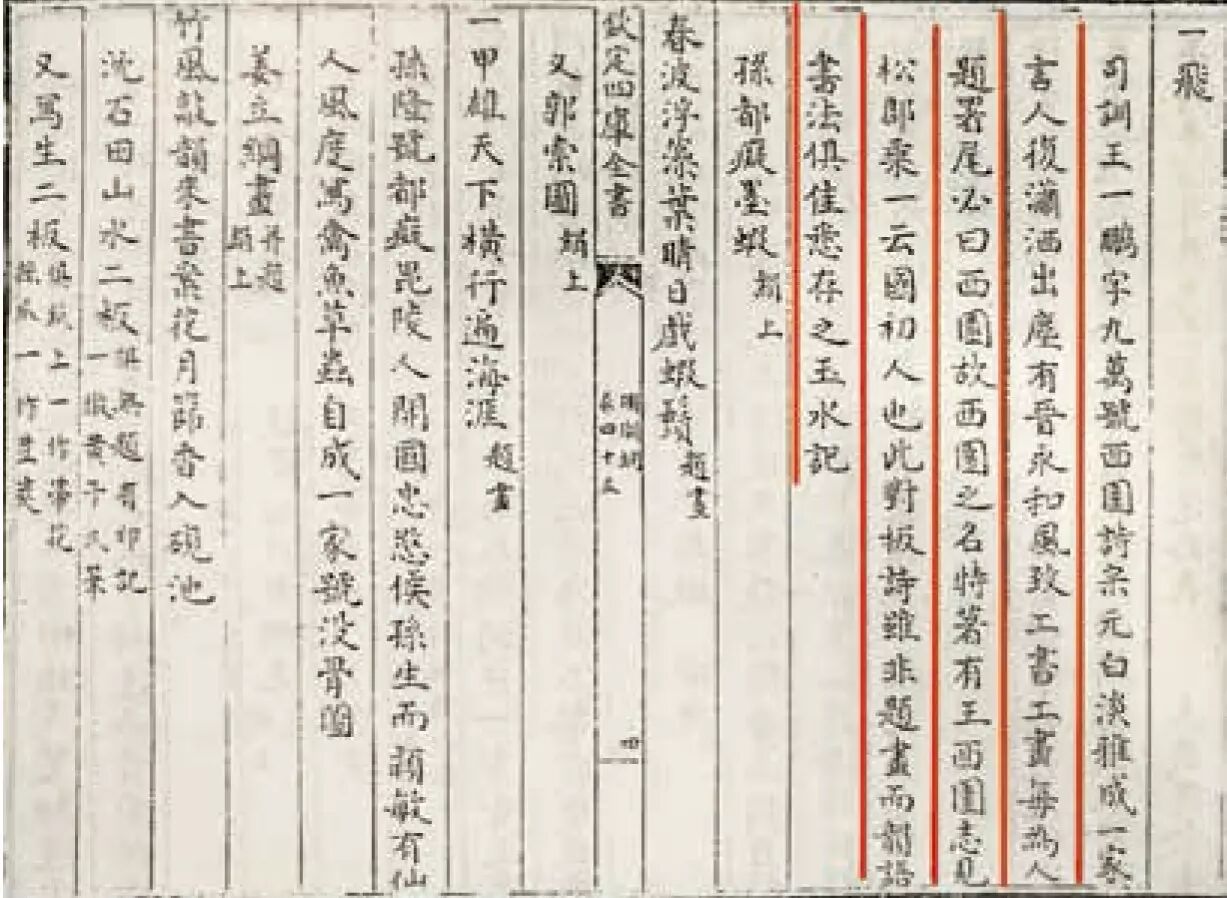 一飛
司訓王一鵬字九萬號西園詩宗元白淡雅成一家
言人復瀟洒出塵有晉永和風致工書工畫每為人
題署尾必曰西園故西園之名特著有王西園志見
松郡乘一云國初人也此對板詩雖非題畫而韻語
書法俱佳悉存之玉水記
孫都癡墨蝦絹上
春波浮藻葉晴日戲蝦鬚題畫
欽定四庫全書
四
又郭索圖絹上
一甲雄天下橫行遍海涯題畫
孫隆號都癡毘陵人開國忠愍侯孫生而穎敏有仙
人風度寫禽魚草蟲自成一家號没骨圖
姜立綱畫并題絹上
竹風敲韻來書案花月篩香入硯池
沈石田山水二板俱無題有印記一倣黄子久筆
又寫生二板俱紙上一作帶花